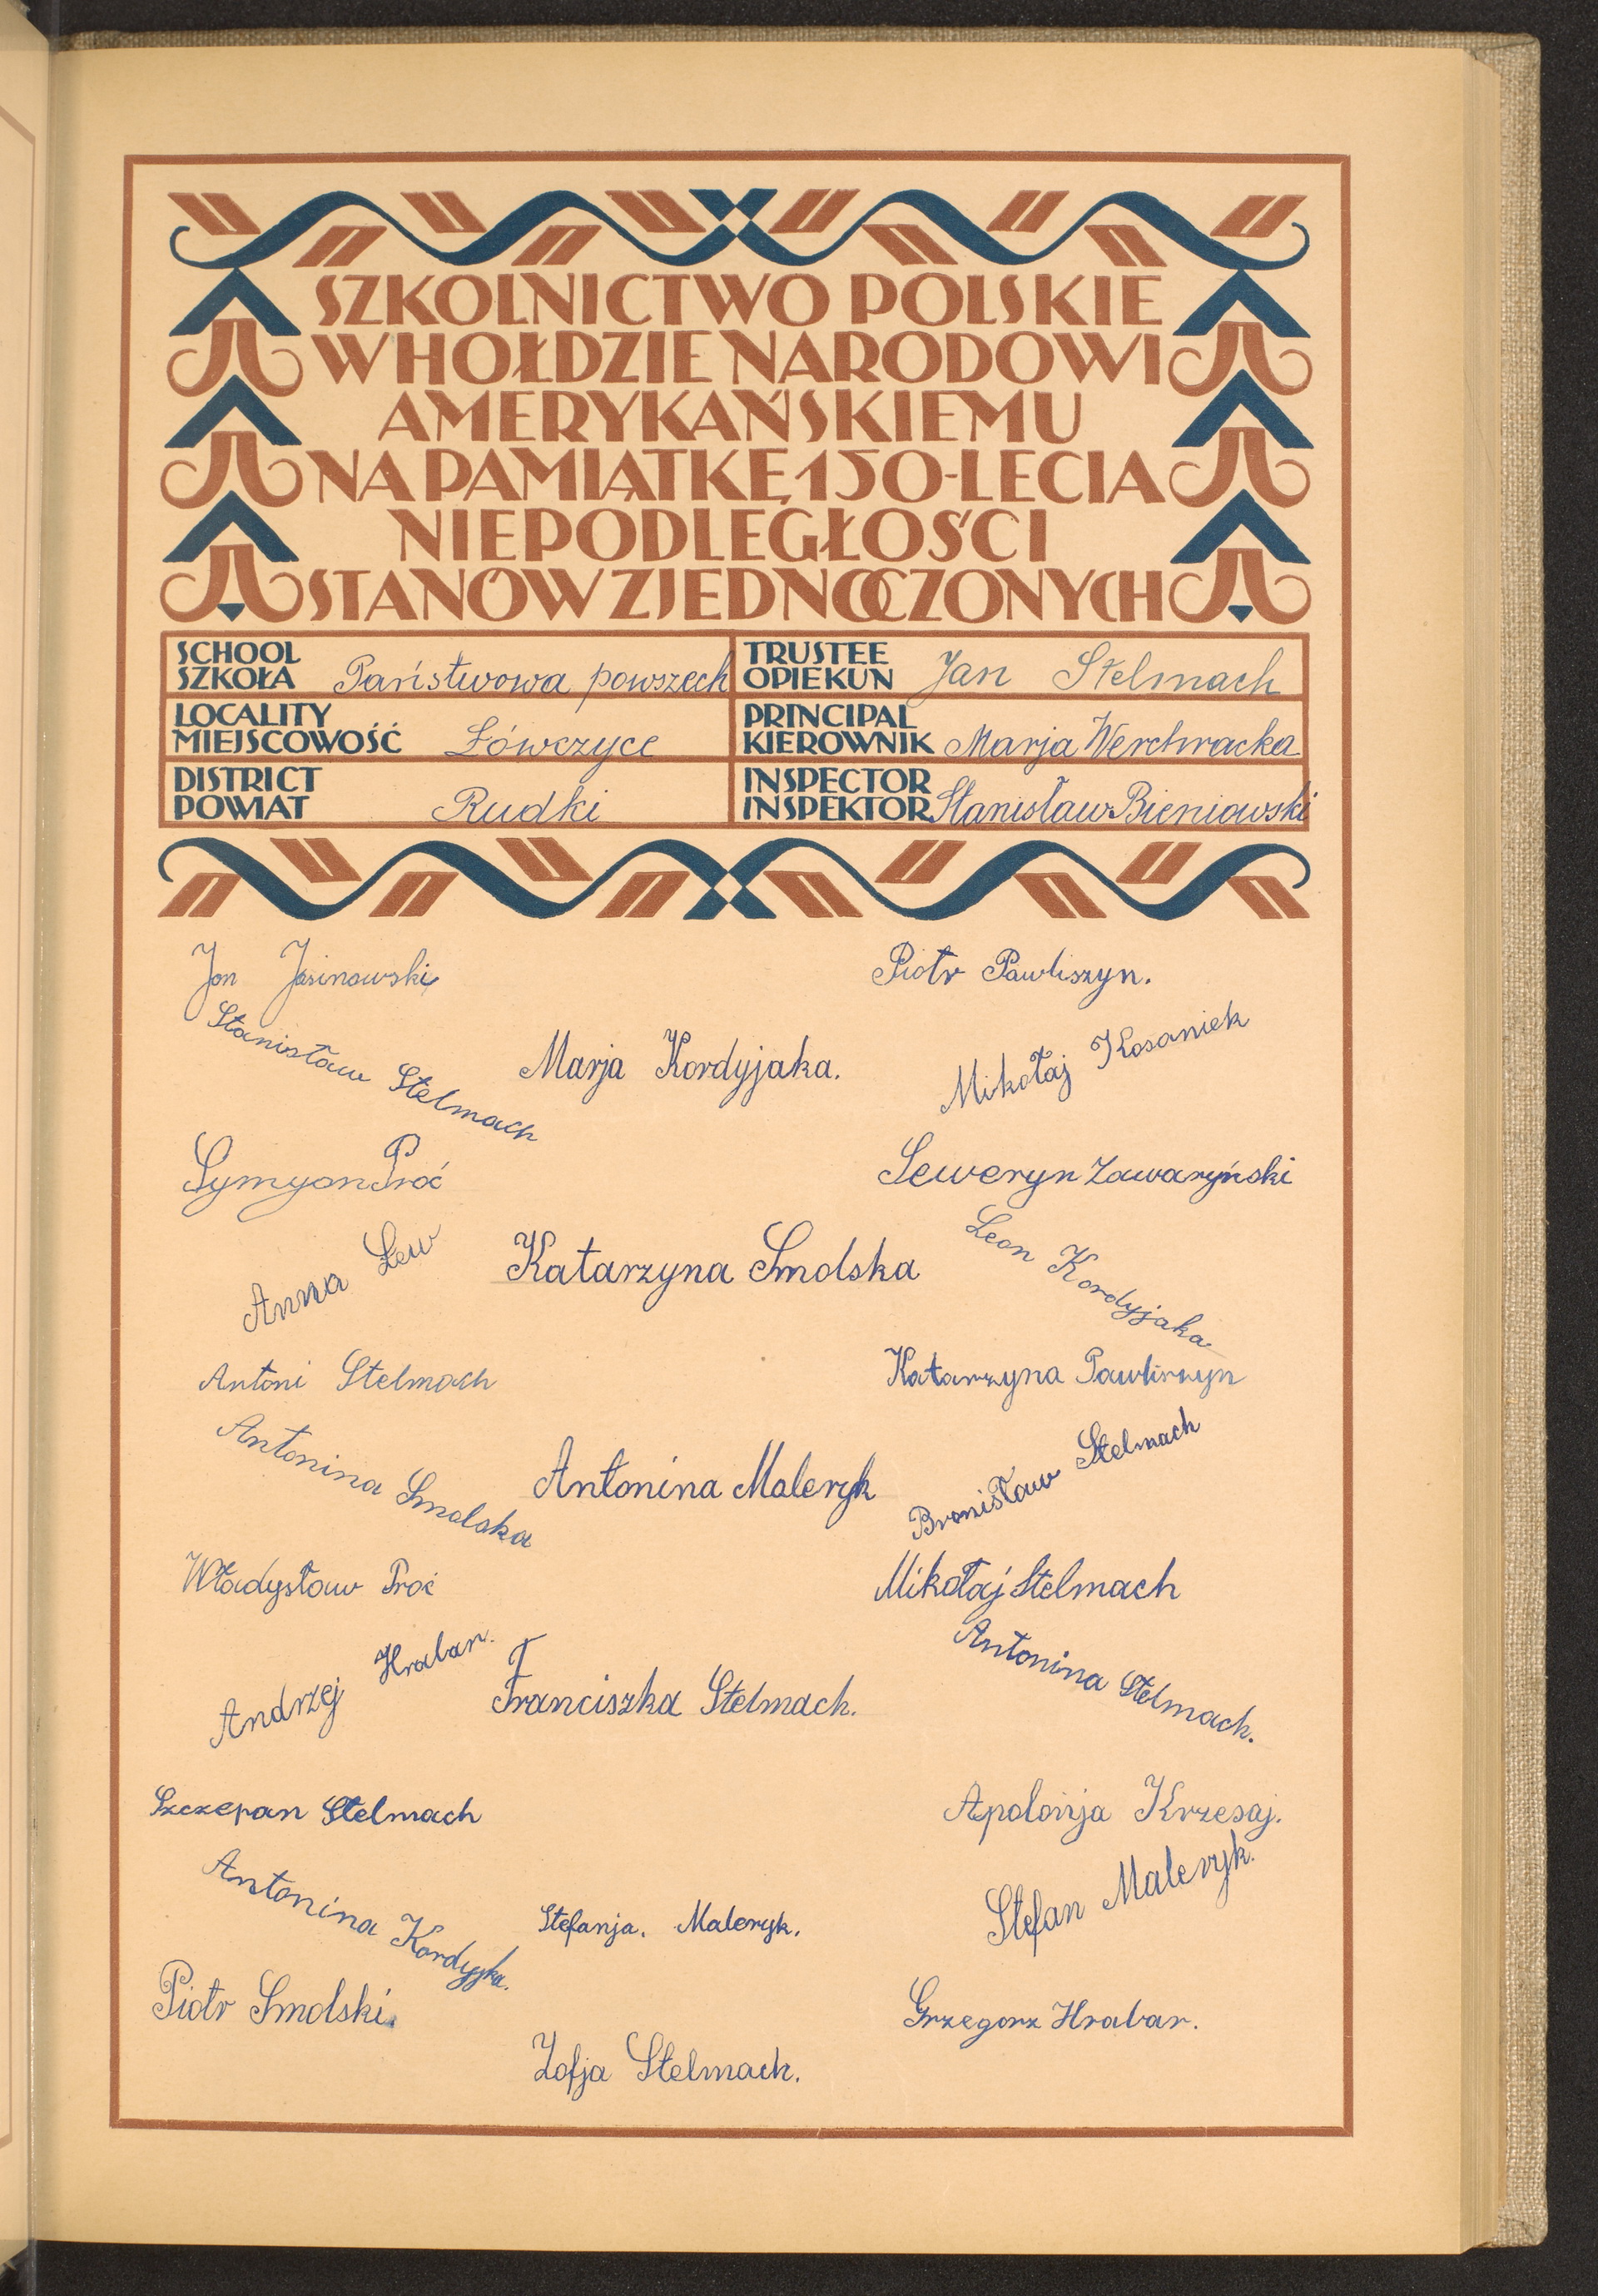 SZKOLNICTWO POLSKIE
W HOŁDZIE NARODOWI
AMERYKAŃSKIEMU
NA PAMIĄTKĘ 150-LECIA
NIEPODLEGŁOŚCI
STANÓW ZJEDNOCZONYCH
SCHOOL
SZKOŁA Państwowa powszech
TRUSTEE
OPIEKUN Jan Stelmach
LOCALITY
MIEJSCOWOŚĆ Łówczyce
PRINCIPAL
KIEROWNIK Marja Werchracka
DISTRICT
POWIAT Rudki
INSPECTOR
INSPEKTOR Stanisław Bieniowski
Jan Jasinowski
Piotr Pawliszyn.
Stanisław Stelmach
Marja Kordyjaka.
Mikołaj Kosaniek
Symyon Proć
Seweryn Zawaryński
Anna Lew
Katarzyna Smolska
Leon Kordyjaka
Antoni Stelmach
Katarzyna Pawliszyn
Antonina Smolska
Antonina Maleryk
Bronisław Stelmach
Władysław Proć
Mikołaj Stelmach
Andrzej Hraban.
Franciszka Stelmach.
Antonina Stelmach.
Szczepan Stelmach
Apolonja Krzesaj.
Antonina
Stefanja. Maleryk.
Stefan Maleryk.
Piotr Smolski.
Grzegorz Hrabar.
Zofja Stelmach.